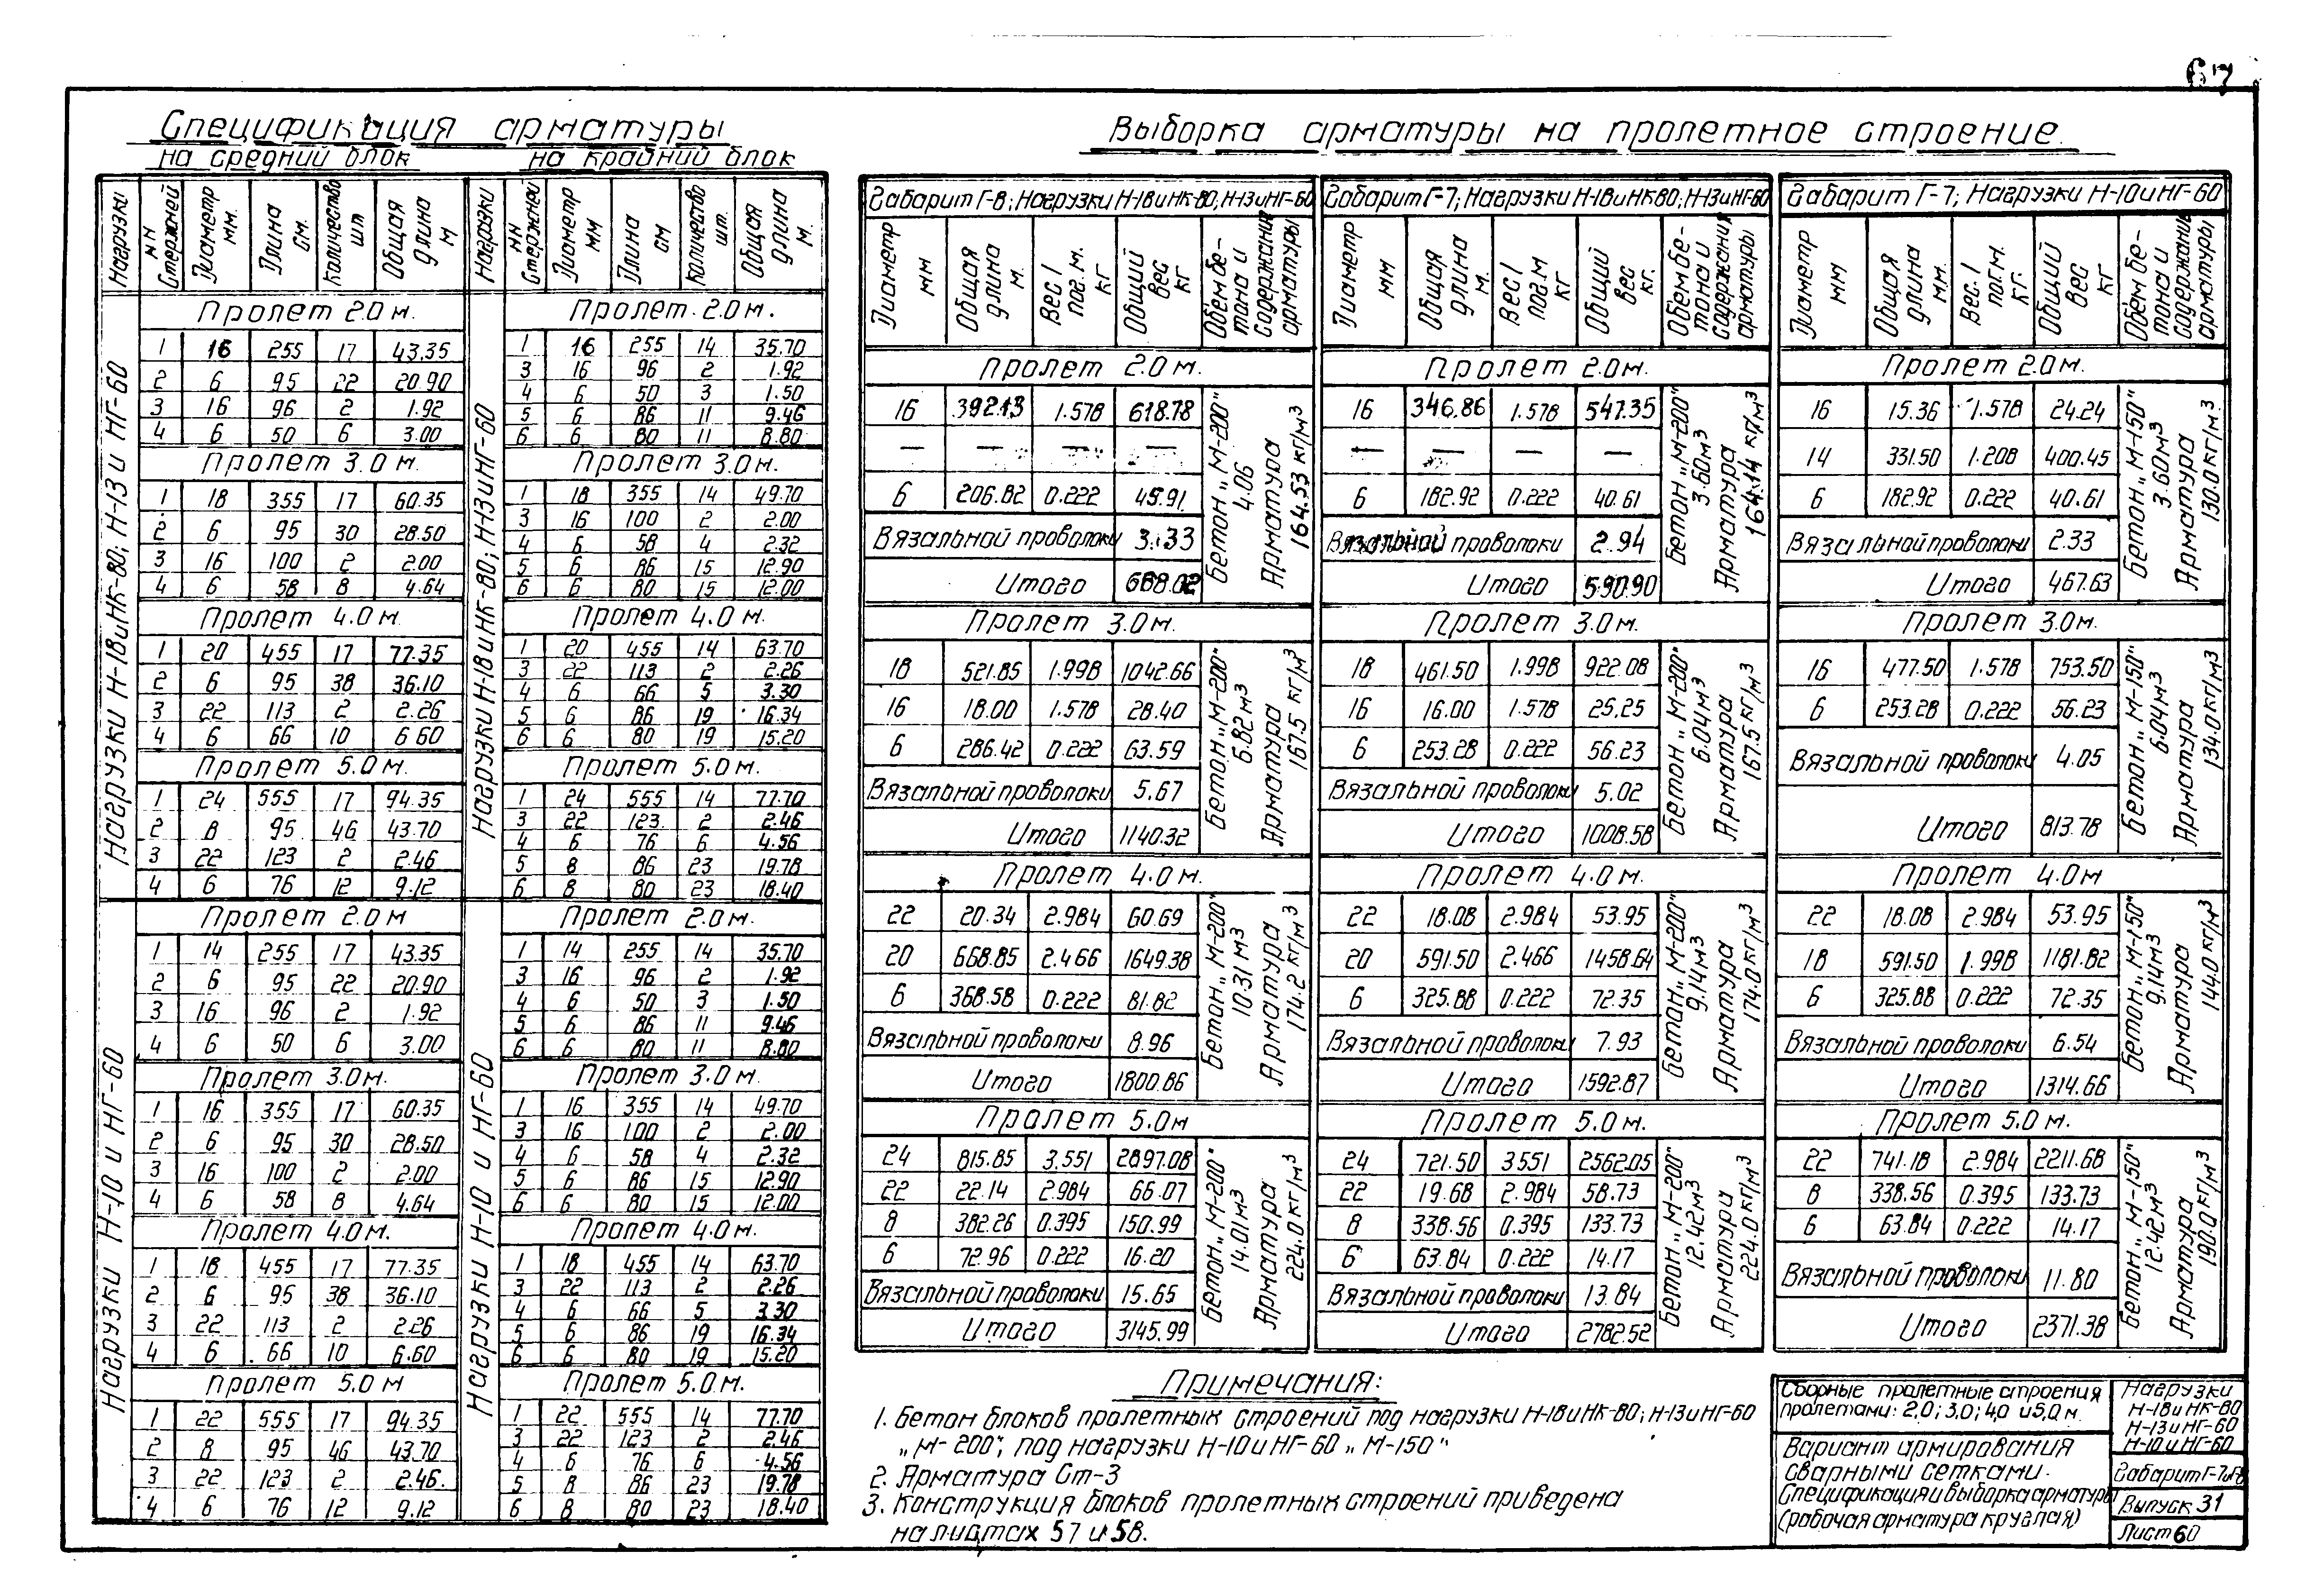 67
Спецификация арматуры
на средний блок на крайний блок
Нагрузки | NN стержней | Диаметр мм. | Длина см. | Количество шт | Общая длина м
Нагрузки Н-18 и НК-80; Н-13 и НГ-60
Пролет 2.0 м.
1 16 255 17 43.35
2 6 95 22 20.90
3 16 96 2 1.92
4 6 50 6 3.00
Пролет 3.0 м.
1 18 355 17 60.35
2 6 95 30 28.50
3 16 100 2 2.00
4 6 58 8 4.64
Пролет 4.0 м.
1 20 455 17 77.35
2 6 95 38 36.10
3 22 113 2 2.26
4 6 66 10 6 60
Пролет 5.0 м.
1 24 555 17 94.35
2 8 95 46 43.70
3 22 123 2 2.46
4 6 76 12 9.12
Нагрузки Н-10 и НГ-60
Пролет 2.0 м
1 14 255 17 43.35
2 6 95 22 20.90
3 16 96 2 1.92
4 6 50 6 3.00
Пролет 3.0 м.
1 16 355 17 60.35
2 6 95 30 28.50
3 16 100 2 2.00
4 6 58 8 4.64
Пролет 4.0 м.
1 18 455 17 77.35
2 6 95 38 36.10
3 22 113 2 2.26
4 6 66 10 6.60
Пролет 5.0 м
1 22 555 17 94.35
2 8 95 46 43.70
3 22 123 2 2.46.
4 6 76 12 9.12
Нагрузки | NN стержней | Диаметр мм | Длина см | Количество шт. | Общая длина м.
Нагрузки Н-18 и НК-80; Н-13 и НГ-60
Пролет 2.0 м.
1 16 255 14 35.70
3 16 96 2 1.92
4 6 50 3 1.50
5 6 86 11 9.46
6 6 80 11 8.80
Пролет 3.0 м.
1 18 355 14 49.70
3 16 100 2 2.00
4 6 58 4 2.32
5 6 86 15 12.90
6 6 80 15 12.00
Пролет 4.0 м.
1 20 455 14 63.70
3 22 113 2 2.26
4 6 66 5 3.30
5 6 86 19 16.34
6 6 80 19 15.20
Пролет 5.0 м.
1 24 555 14 77.70
3 22 123 2 2.46
4 6 76 6 4.56
5 8 86 23 19.78
6 8 80 23 18.40
Нагрузки Н-10 и НГ-60
Пролет 2.0 м.
1 14 255 14 35.70
3 16 96 2 1.92
4 6 50 3 1.50
5 6 86 11 9.46
6 6 80 11 8.80
Пролет 3.0 м.
1 16 355 14 49.70
3 16 100 2 2.00
4 6 58 4 2.32
5 6 86 15 12.90
6 6 80 15 12.00
Пролет 4.0 м.
1 18 455 14 63.70
3 22 113 2 2.26
4 6 66 5 3.30
5 6 86 19 16.34
6 6 80 19 15.20
Пролет 5.0 м.
1 22 555 14 77.70
3 22 123 2 2.46
4 6 76 6 4.56
5 8 86 23 19.78
6 8 80 23 18.40
Выборка арматуры на пролетное строение.
Габарит Г-8; Нагрузки Н-18 и НК-80; Н-13 и НГ-60
Диаметр мм | Общая длина м. | Вес 1 пог. м. кг | Общий вес кг | Объем бетона и содержание арматуры
Пролет 2.0 м.
16 392.13 1.578 618.78
— — — —
6 206.82 0.222 45.91
Вязальной проволоки 3.33
Итого 668.02
Бетон „М-200" 4.06
Арматура 164.53 кг/м3
Пролет 3.0 м.
18 521.85 1.998 1042.66
16 18.00 1.578 28.40
6 286.42 0.222 63.59
Вязальной проволоки 5.67
Итого 1140.32
Бетон „М-200" 6.82 м3
Арматура 167.5 кг/м3
Пролет 4.0 м.
22 20.34 2.984 60.69
20 668.85 2.466 1649.38
6 368.58 0.222 81.82
Вязальной проволоки 8.96
Итого 1800.86
Бетон „М-200" 10.31 м3
Арматура 174.2 кг/м3
Пролет 5.0 м
24 815.85 3.551 2897.08
22 22.14 2.984 66.07
8 382.26 0.395 150.99
6 72.96 0.222 16.20
Вязальной проволоки 15.65
Итого 3145.99
Бетон „М-200" 14.01 м3
Арматура 224.0 кг/м3
Габарит Г-7; Нагрузки Н-18 и НК 80; Н-13 и НГ-60
Диаметр мм | Общая длина м. | Вес 1 пог.м кг | Общий вес кг. | Объем бетона и содержания арматуры
Пролет 2.0 м.
16 346.86 1.578 547.35
— — — —
6 182.92 0.222 40.61
Вязальной проволоки 2.94
Итого 590.90
Бетон „М-200" 3.60 м3
Арматура 164.14 кг/м3
Пролет 3.0 м.
18 461.50 1.998 922.08
16 16.00 1.578 25.25
6 253.28 0.222 56.23
Вязальной проволоки 5.02
Итого 1008.58
Бетон „М-200" 6.04 м3
Арматура 167.5 кг/м3
Пролет 4.0 м.
22 18.08 2.984 53.95
20 591.50 2.466 1458.64
6 325.88 0.222 72.35
Вязальной проволоки 7.93
Итого 1592.87
Бетон „М-200" 9.14 м3
Арматура 174.0 кг/м3
Пролет 5.0 м.
24 721.50 3551 2562.05
22 19.68 2.984 58.73
8 338.56 0.395 133.73
6 63.84 0.222 14.17
Вязальной проволоки 13.84
Итого 2782.52
Бетон „М-200" 12.42 м3
Арматура 224.0 кг/м3
Габарит Г-7; Нагрузки Н-10 и НГ-60
Диаметр мм | Общая длина мм. | Вес. 1 пог.м. кг. | Общий вес кг | Объем бетона и содержание арматуры
Пролет 2.0 м.
16 15.36 1.578 24.24
14 331.50 1.208 400.45
6 182.92 0.222 40.61
Вязальной проволоки 2.33
Итого 467.63
Бетон „М-150" 3.60 м3
Арматура 130.0 кг/м3
Пролет 3.0 м.
16 477.50 1.578 753.50
6 253.28 0.222 56.23
Вязальной проволоки 4.05
Итого 813.78
Бетон „М-150" 6.04 м3
Арматура 134.0 кг/м3
Пролет 4.0 м
22 18.08 2.984 53.95
18 591.50 1.998 1181.82
6 325.88 0.222 72.35
Вязальной проволоки 6.54
Итого 1314.66
Бетон „М-150" 9.14 м3
Арматура 144.0 кг/м3
Пролет 5.0 м.
22 741.18 2.984 2211.68
8 338.56 0.395 133.73
6 63.84 0.222 14.17
Вязальной проволоки 11.80
Итого 2371.38
Бетон „М-150" 12.42 м3
Арматура 190.0 кг/м3
Примечания:
1. Бетон блоков пролетных строений под нагрузки Н-18 и НК-80; Н-13 и НГ-60
„М-200"; под нагрузки Н-10 и НГ-60 „М-150"
2. Арматура Ст-3
3. Конструкция блоков пролетных строений приведена
на листах 57 и 58.
Сборные пролетные строения
пролетами: 2.0; 3.0; 4.0 и 5.0 м.
Вариант армирования
сварными сетками.
Спецификация и выборка арматуры
(рабочая арматура круглая)
Нагрузки
Н-18 и НК-80
Н-13 и НГ-60
Н-10 и НГ-60
Габарит Г-7 и Г-8
Выпуск 31
Лист 60